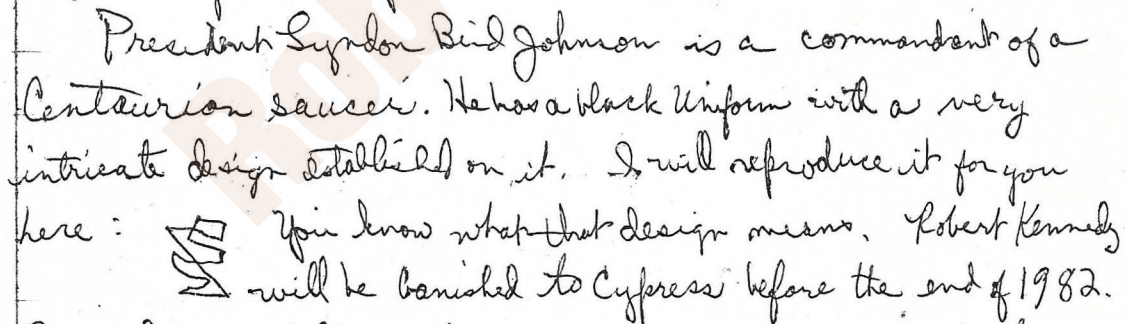 President Lyndon Bird Johnson is a commandant of a
Centaurion saucer. He has a black Uniform with a very
intricate design established on it. I will reproduce it for you
here : You know what that design means. Robert Kennedy
will be banished to Cypress before the end of 1982.